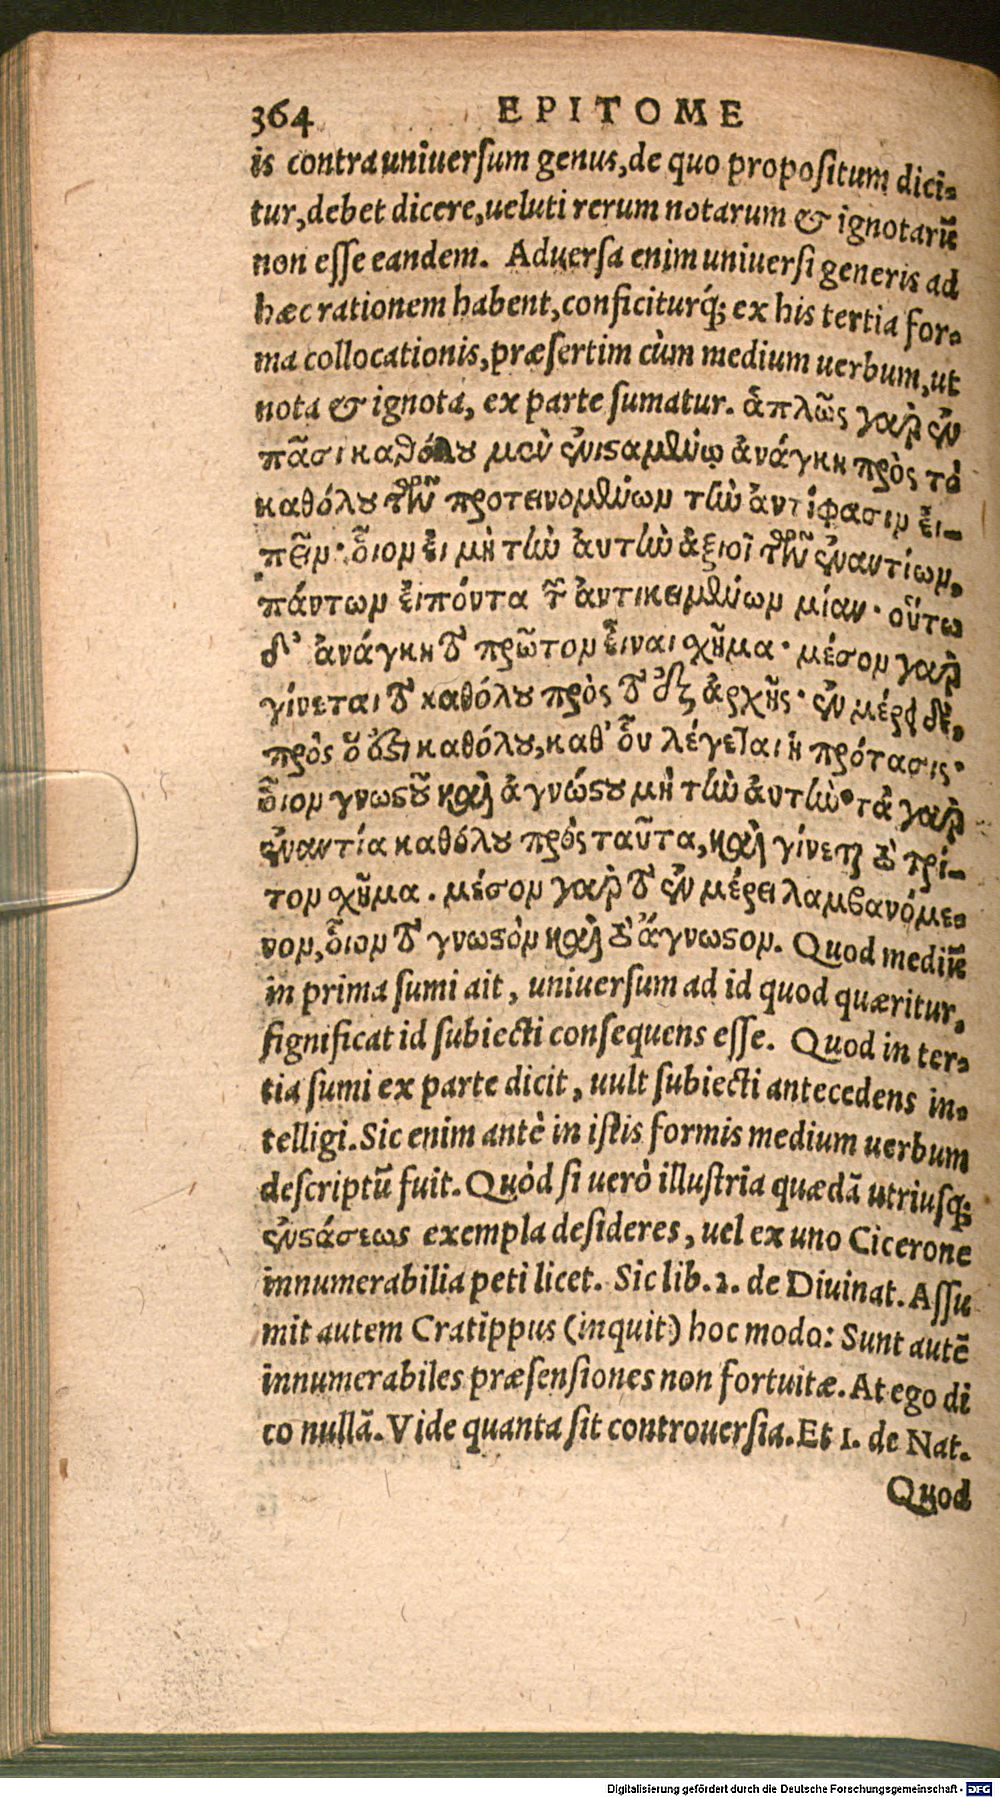 364 EPITOME
is contra uniuersum genus, de quo propositum dici-
tur, debet dicere, ueluti rerum notarum & ignotarũ
non esse eandem. Aduersa enim uniuersi generis ad
hæc rationem habent, conficiturq́; ex his tertia for-
ma collocationis, præsertim cùm medium uerbum, ut
nota & ignota, ex parte sumatur. ἁπλῶς γαρ ἐν
πᾶσι καθόλου μεν ἐνισαμένῳ ἀνάγκη πρὸς τὸ
καθόλου τῶν προτεινομένων τὴν ἀντίφασιν εἰ-
πεῖν· οἷον εἰ μὴ τὴν ἀυτὴν ἀξιοῖ τῶν ἐναντίων,
πάντων εἰπόντα τῶν ἀντικειμένων μίαν· οὕτω
δ' ἀνάγκη τὸ πρῶτον εἶναι χῆμα· μέσον γαρ
γίνεται τὸ καθόλου πρὸς τὸ ἐξ ἀρχῆς· ἐν μέρει δὲ,
πρὸς ὅ ὅζι καθόλου, καθ' οὗ λέγεται ἡ πρότασις·
οἷον γνωςοῦ καὶ ἀγνώςου μὴ τὴν ἀυτὴν· τὰ γαρ
ἐναντία καθόλου πρὸς ταῦτα, καὶ γίνεται τὸ τρί-
τον χῆμα. μέσον γαρ τὸ ἐν μέρει λαμβανόμε-
νον, οἷον τὸ γνωςὸν καὶ τὸ ἄγνωςον. Quod mediũ
in prima sumi ait, uniuersum ad id quod quæritur,
significat id subiecti consequens esse. Quod in ter-
tia sumi ex parte dicit, uult subiecti antecedens in-
telligi. Sic enim antè in istis formis medium uerbum
descriptũ fuit. Quòd si uerò illustria quædã utriusq;
ἐνςάσεως exempla desideres, uel ex uno Cicerone
innumerabilia peti licet. Sic lib. 2. de Diuinat. Assu
mit autem Cratippus (inquit) hoc modo: Sunt autẽ
innumerabiles præsensiones non fortuitæ. At ego di
co nullã. Vide quanta sit controuersia. Et 1. de Nat.
Quod
Digitalisierung gefördert durch die Deutsche Forschungsgemeinschaft - DFG